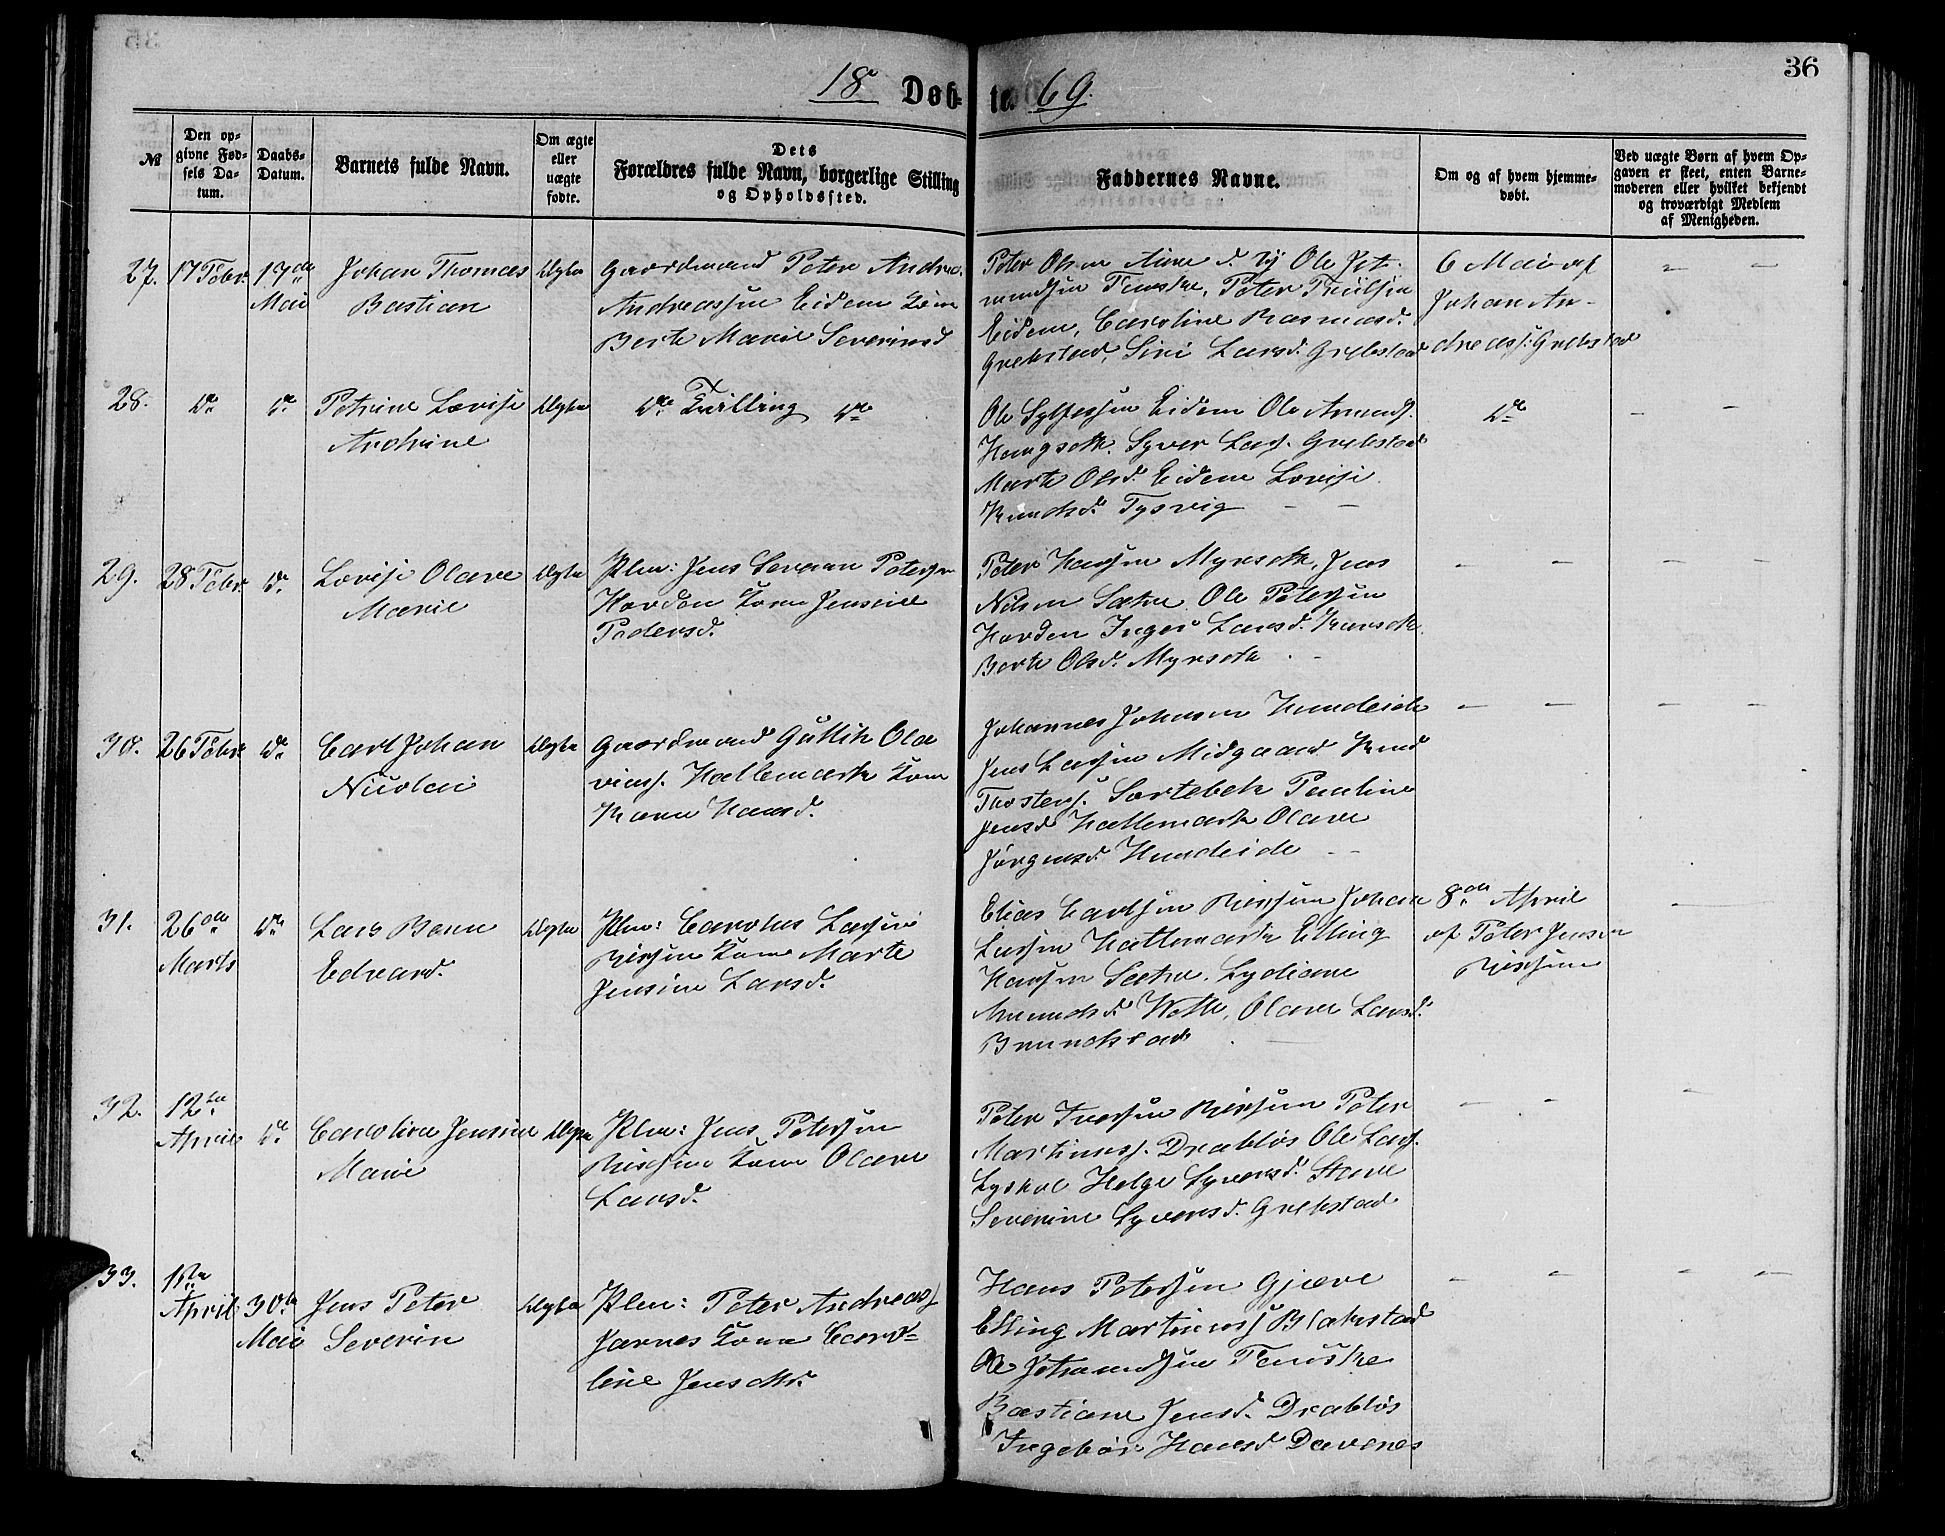 36
18 Døb- te. 69.
№
Den op-
givne Fød-
sels Da-
tum.
Daabs-
Datum.
Barnets fulde Navn.
Om ægte
eller
uægte
fødte.
Dets
Forældres fulde Navn, borgerlige Stilling
og Opholdssted.
Faddernes Navne.
Om og af hvem hjemme-
døbt.
Ved uægte Børn af hvem Op-
gaven er skeet, enten Barne-
moderen eller hvilket bekjendt
og troværdigt Medlem
af Menigheden.
27.
17 Febr.
17de
Mai
Johan Thomas
Bastian
Ægte
Gaardmand Peter Andrea-
Andreassen Eidem Kone
Berte Marie Severinsd
Peter Olsen Ole
Fauske, Peter
Eidem, Caroline Rasmusd.
Grebstad, Siri Larsd. Grebstad
6 Mai af
Johan An-
dreass. Grebstad
28.
do
do
Petrine Lovise
Andrine
Ægte
do Tvilling do
Ole Eidem Ole Amunds.
Haugseth. Syver Lass. Grebstad
Marte Olsd. Eidem Lovise
Knudsd. Tysvig
do
29.
28 Febr.
do
Lovise Olave
Marie
Ægte
Plm: Jens Severin Petersen
Hovden Kone Jensine
Pedersd.
Peter Hansen Myrseth, Jens
Nilsen Sætre Ole Petersen
Hovden Inger Larsd.
Berte Olsd. Myrseth
30.
26 Febr
do
Carl Johan
Nicolai
Ægte
Gaardmand Guttik Ola
vins. Hattemark Kone
Karen Hansd.
Johannes Johnsen Hundeide
Jens Lassen Midgaard Knud
Thostens. Sortebek Pauline
Jensd. Hattemark Olave
Jørgensd. Hundeide
31.
26de
Marts
do
Lars Bern
Edvard.
Ægte
Plm: Carolus Lassen
Riksem Kone Marte
Jensine Larsd.
Elias Carlsen Riksem Johan
Lassen Hattemark Elling
Hansen Sætre. Lydiane
Amundsd. Welle, Olave Larsd.
Brunstad
8de April
af Peter Jensen
Riksem
32.
12te
April
do
Caroline Jensine
Marie
Ægte
Plm: Jens Petersen
Riksem Kone Olave
Larsd.
Peter Iversen Riksem Peter
Martinus. Drabløs Ole Lass.
Lyshol Helge Syversd. Stave
Severine Syversd. Grebstad
33.
April
30te
Mai
Jens Peter
Severin
Ægte
Plm: Peter Andreas
Jarnes Kone Caro-
line Jensdtr.
Hans Petersen Gjære
Elling Martinus Blakstad
Ole Fauske
Bastiane Jensd. Drabløs
Ingebor Hansd. Davenes